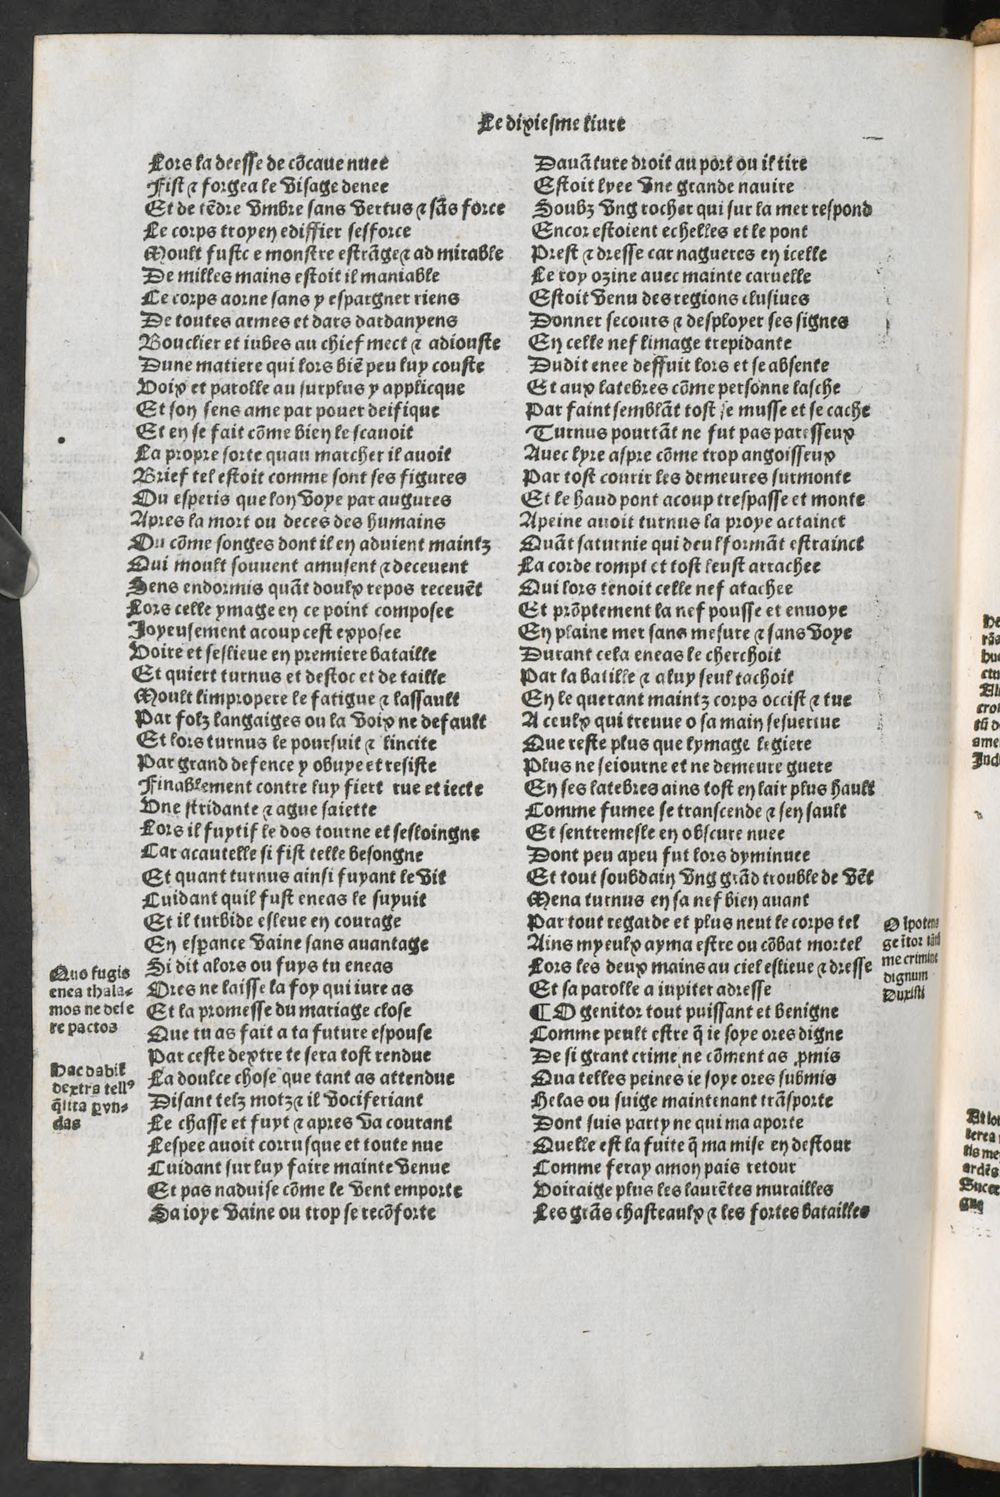 Le dixiesme livre
Lors la deesse de cõcaue nuee
Fist ⁊ forgea le visage denee
Et de tẽdre vmbre sans vertus ⁊ sãs force
Le corps troyen ediffier sesforce
Moult fustc e monstre estrãge⁊ ad mirable
De milles mains estoit il maniable
Le corps aorne sans y espargner riens
De toutes armes et dars dardanyens
Bouclier et iubes au chief mect ⁊ adiouste
Dune matiere qui lors biẽ peu luy couste
Voix et parolle au surplus y applicque
Et son sens ame par pouer deifique
Et en se fait cõme bien le scauoit
La propre sorte quau marcher il auoit
Brief tel estoit comme sont ses figures
Ou esperis que lon voye par augures
Apres la mort ou deces des humains
Ou cõme songes dont il en aduient maintz
Qui moult souuent amusent ⁊ deceuent
Sens endormis quãt doulx repos receuẽt
Lors celle ymage en ce point composee
Joyeusement acoup cest exposee
Voire et seslieue en premiere bataille
Et quiert turnus et destoc et de taille
Moult limpropere le fatigue ⁊ lassault
Par folz langaiges ou la voix ne default
Et lors turnus le poursuit ⁊ lincite
Par grand defence y obuye et resiste
Finablement contre luy fiert rue et iecte
Vne stridante ⁊ ague saiette
Lors il fuytif le dos tourne et sesloingne
Car acautelle si fist telle besongne
Et quant turnus ainsi fuyant le vit
Cuidant quil fust eneas le suyuit
Et il turbide esleue en courage
En esperance vaine sans auantage
Si dit alors ou fuys tu eneas
Ores ne laisse la foy qui iure as
Et la promesse du mariage close
Que tu as fait a ta future espouse
Par ceste dextre te sera tost rendue
La doulce chose que tant as attendue
Disant telz motz ⁊ il vociferiant
Le chasse et fuyt ⁊ apres va courant
Lespee auoit corrusque et toute nue
Cuidant sur luy faire mainte venue
Et pas naduise cõme le vent emporte
Sa ioye vaine ou trop se recõforte
Quo fugis
enea thala-
mos ne dese
re pactos
Hac dabit
dextra tell⁹
q̃sita ꝑ vn-
das
Dauãture droit au port ou il tire
Estoit lyee vne grande nauire
Soubz vng rocher qui sur la mer respond
Encor estoient echelles et le pont
Prest ⁊ dresse car nagueres en icelle
Le roy ozine auec mainte caruelle
Estoit venu des regions clusiues
Donner secours ⁊ desployer ses signes
En celle nef limage trepidante
Dudit enee deffuit lors et se absente
Et aux latebres cõme personne lasche
Par faint semblãt tost se musse et se cache
Turnus pourtãt ne fut pas paresseux
Auec lyre aspre cõme trop angoisseux
Par tost courir les demeures surmonte
Et le haud pont acoup trespasse et monte
Apeine auoit turnus la proye actainct
Quãt saturnie qui deul formãt estrainct
La corde rompt et tost leust attachee
Qui lors tenoit celle nef atachee
Et prõptement la nef pousse et enuoye
En plaine mer sans mesure ⁊ sans voye
Durant cela eneas le cherchoit
Par la batille ⁊ a luy seul tachoit
En le querant maintz corps occist ⁊ tue
A ceulx qui treuue o sa main sesuertue
Que reste plus que lymage legiere
Plus ne seiourne et ne demeure guere
En ses latebres ains tost en lair plus hault
Comme fumee se transcende ⁊ sen sault
Et sentremesle en obscure nuee
Dont peu apeu fut lors dyminuee
Et tout soubdain vng grãd trouble de vẽt
Mena turnus en sa nef bien auant
Par tout regarde et plus neut le corps tel
Ains myeulx ayma estre ou cõbat mortel
Lors les deux mains au ciel eslieue ⁊ dresse
Et sa parolle a iupiter adresse
¶ O genitor tout puissant et benigne
Comme peult estre q̃ ie soye ores digne
De si grant crime ne cõment as ꝓmis
Qua telles peines ie soye ores submis
Helas ou suige maintenant trãsporte
Dont suis party ne qui ma aporte
Quelle est la fuite q̃ ma mise en destour
Comme feray amon pais retour
Voiraige plus les laurẽtes murailles
Les grãs chasteaulx ⁊ les fortes batailles
O īpotens
ge ītor tãti
me crimine
dignum
Duxisti